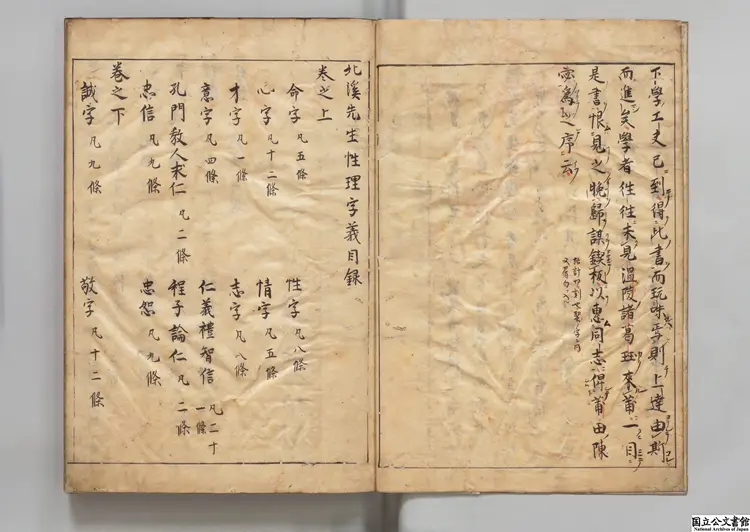 下學工夫已到得此書而玩味焉則上達由斯
而進矣學者徃徃未見溫陵諸葛珏來莆一目
是書恨見之晚歸謀鋟板以惠同志俾莆田陳
宓爲之序云
北溪先生性理字義目録
卷之上
命字 凡五條 性字 凡八條
心字 凡十二條 情字 凡五條
才字 凡一條 志字 凡八條
意字 凡四條 仁義禮智信 凡二十一條
孔門教人求仁 凡二條 程子論仁 凡二條
忠信 凡九條 忠恕 凡九條
卷之下
誠字 凡九條 敬字 凡十二條
国立公文書館
National Archives of Japan